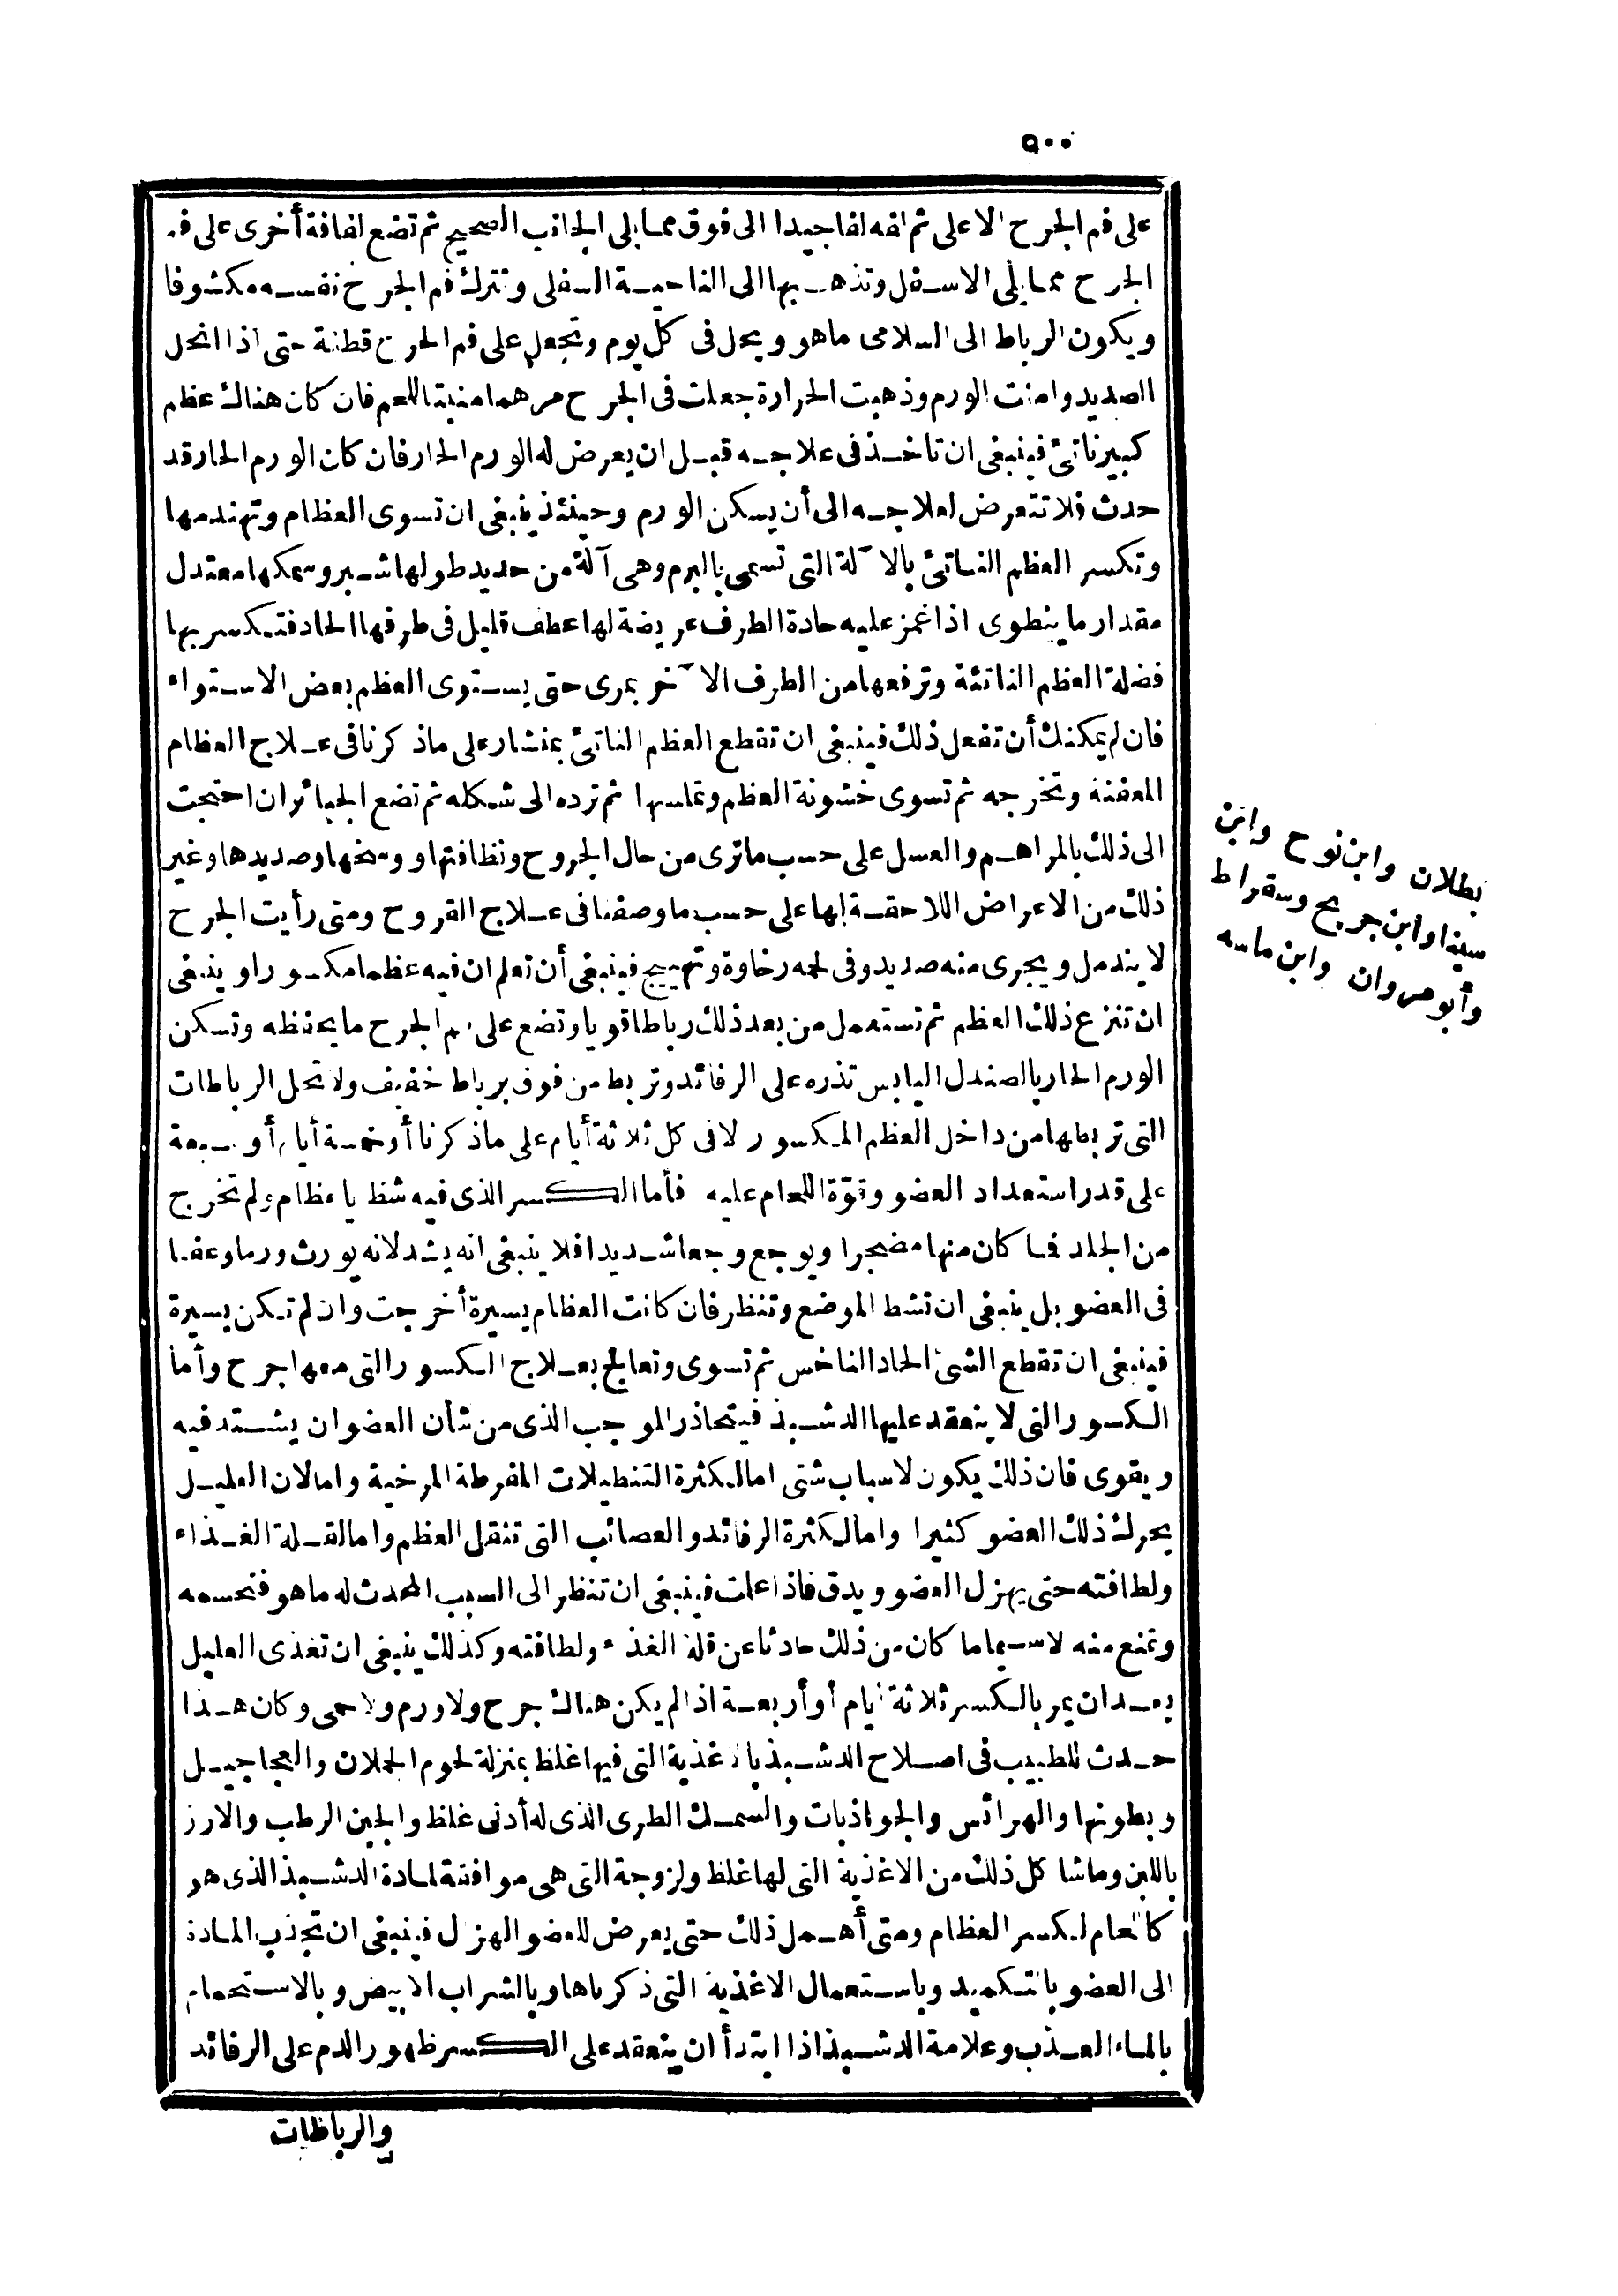 ٥٠٠
على فم الجرح الاعلى ثم لفه لفا جيدا الى فوق مما يلى الجانب الصحيح ثم تضع لفافة أخرى على فم
الجرح مما يلى الاسفل وتذهب بها الى الناحية السفلى وتترك فم الجرح نفسه مكشوفا
ويكون الرباط الى السلامى ماهو ويحل فى كل يوم وتجعل على فم الجرح قطنة حتى اذا انحل
الصديد وامنت الورم وذهبت الحرارة جعلت فى الجرح مرهما منبتا للحم فان كان هناك عظم
كبير ناتئ فينبغى ان تاخذ فى علاجه قبل ان يعرض له الورم الحار فان كان الورم الحار قد
حدث فلا تتعرض لعلاجه الى أن يسكن الورم وحينئذ ينبغى ان تسوى العظام وتهندمها
وتكسر العظم الناتئ بالا ٓلة التى تسمى بالبرم وهى آلة من حديد طولها شبر وسمكها معتدل
مقدار ما ينطوى اذا غمز عليه حادة الطرف عريضة لها عطف قليل فى طرفها الحاد فتكسر بها
فضلة العظم الناتئة وترفعها من الطرف الا ٓخر بمرى حتى يستوى العظم بعض الاستواء
فان لم يمكنك أن تفعل ذلك فينبغى ان تقطع العظم الناتئ بمنشار على ماذكرنا فى علاج العظام
المعفنة وتخرجه ثم تسوى خشونة العظم وتملسها ثم ترده الى شكله ثم تضع الجبائر ان احتجت
الى ذلك بالمراهم والعسل على حسب ماترى من حال الجروح ونظافتها ووسخها وصديدها وغير
ذلك من الاعراض اللاحقة لها على حسب ما وصفنا فى علاج القروح ومتى رأيت الجرح
لا يندمل ويجرى منه صديد وفى لحمه رخاوة وتهييج فينبغى أن تعلم ان فيه عظما مكسورا وينبغى
ان تنزع ذلك العظم ثم تستعمل من بعد ذلك رباطا قويا وتضع على فم الجرح ما يحفظه وتسكن
الورم الحار بالصندل اليابس تذره على الرفائد وتربط من فوق برباط خفيف ولا تحل الرباطات
التى تربطها من داخل العظم المكسور لا فى كل ثلاثة أيام على ماذكرنا أو خمسة أيام أو سبعة
على قدر استعداد العضو وقوّة اللحام عليه فأما الكسر الذى فيه شظايا عظام ولم تخرج
من الجلد فما كان منها مضجرا ويوجع وجعا شديدا فلا ينبغى انه يشد لانه يورث ورما وعفنا
فى العضو بل ينبغى ان تشط الموضع وتنظر فان كانت العظام يسيرة أخرجت وان لم تكن يسيرة
فينبغى ان تقطع الشئ الحاد الناخس ثم تسوى وتعالج بعلاج الكسور التى معها جرح وأما
الكسور التى لا ينعقد عليها الدشبذ فيتحاذر الموجب الذى من شأن العضو ان يشتد فيه
ويقوى فان ذلك يكون لاسباب شتى اما لكثرة التنطيلات المفرطة المرخية واما لان العليل
يحرك ذلك العضو كثيرا واما لكثرة الرفائد والعصائب التى تثقل العظم واما لقلة الغذاء
ولطافته حتى يهزل العضو ويدق فاذا علمت فينبغى ان تنظر الى السبب المحدث له ماهو فتحسمه
وتمنع منه لاسيما ما كان من ذلك حادثا عن قلة الغذاء ولطافته وكذلك ينبغى ان تغذى العليل
بعد ان يمر بالكسر ثلاثة أيام أو أربعة اذا لم يكن هناك جرح ولا ورم ولا حمى وكان هذا
حدث للطبيب فى اصلاح الدشبذ بالاغذية التى فيها غلظ بمنزلة لحوم الحملان والعجاجيل
وبطونها والهرائس والجواذبات والسمك الطرى الذى له أدنى غلظ والجبن الرطب والارز
باللبن وماشا كل ذلك من الاغذية التى لها غلظ ولزوجة التى هى موافقة لمادة الدشبذ الذى هو
كاللحام لكسر العظام ومتى أهمل ذلك حتى يعرض للعضو الهزل فينبغى ان تجذب المادة
الى العضو بالتكميد وباستعمال الاغذية التى ذكرناها وبالشراب الابيض وبالاستحمام
بالماء العذب وعلامة الدشبذ اذا ابتدأ ان ينعقد على الكسر ظهور الدم على الرفائد
والرباطات
بطلان وابن نوح وابن
سينا وابن جريج وسقراط
وأبو مروان وابن ماسه